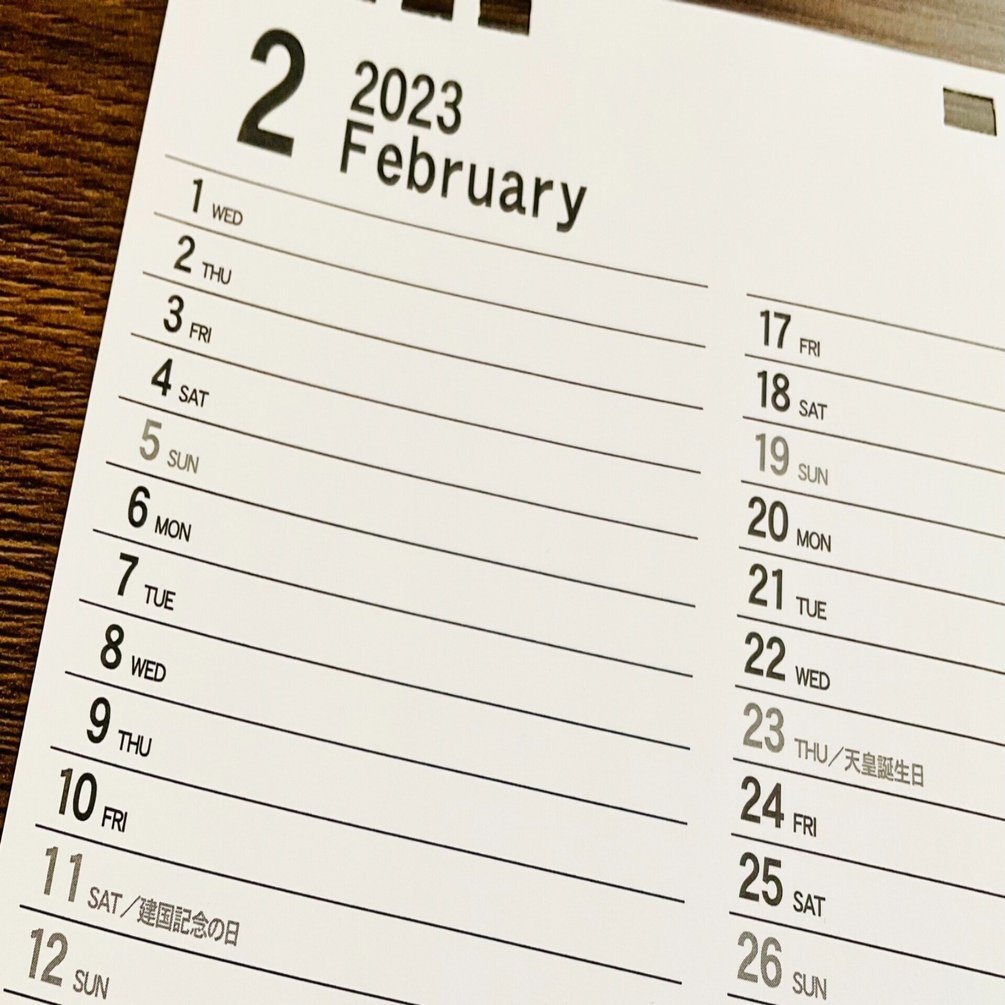 2
2023
February
1 WED
2 THU
3 FRI
4 SAT
5 SUN
6 MON
7 TUE
8 WED
9 THU
10 FRI
11 SAT/建国記念の日
12 SUN
17 FRI
18 SAT
19 SUN
20 MON
21 TUE
22 WED
23 THU/天皇誕生日
24 FRI
25 SAT
26 SUN